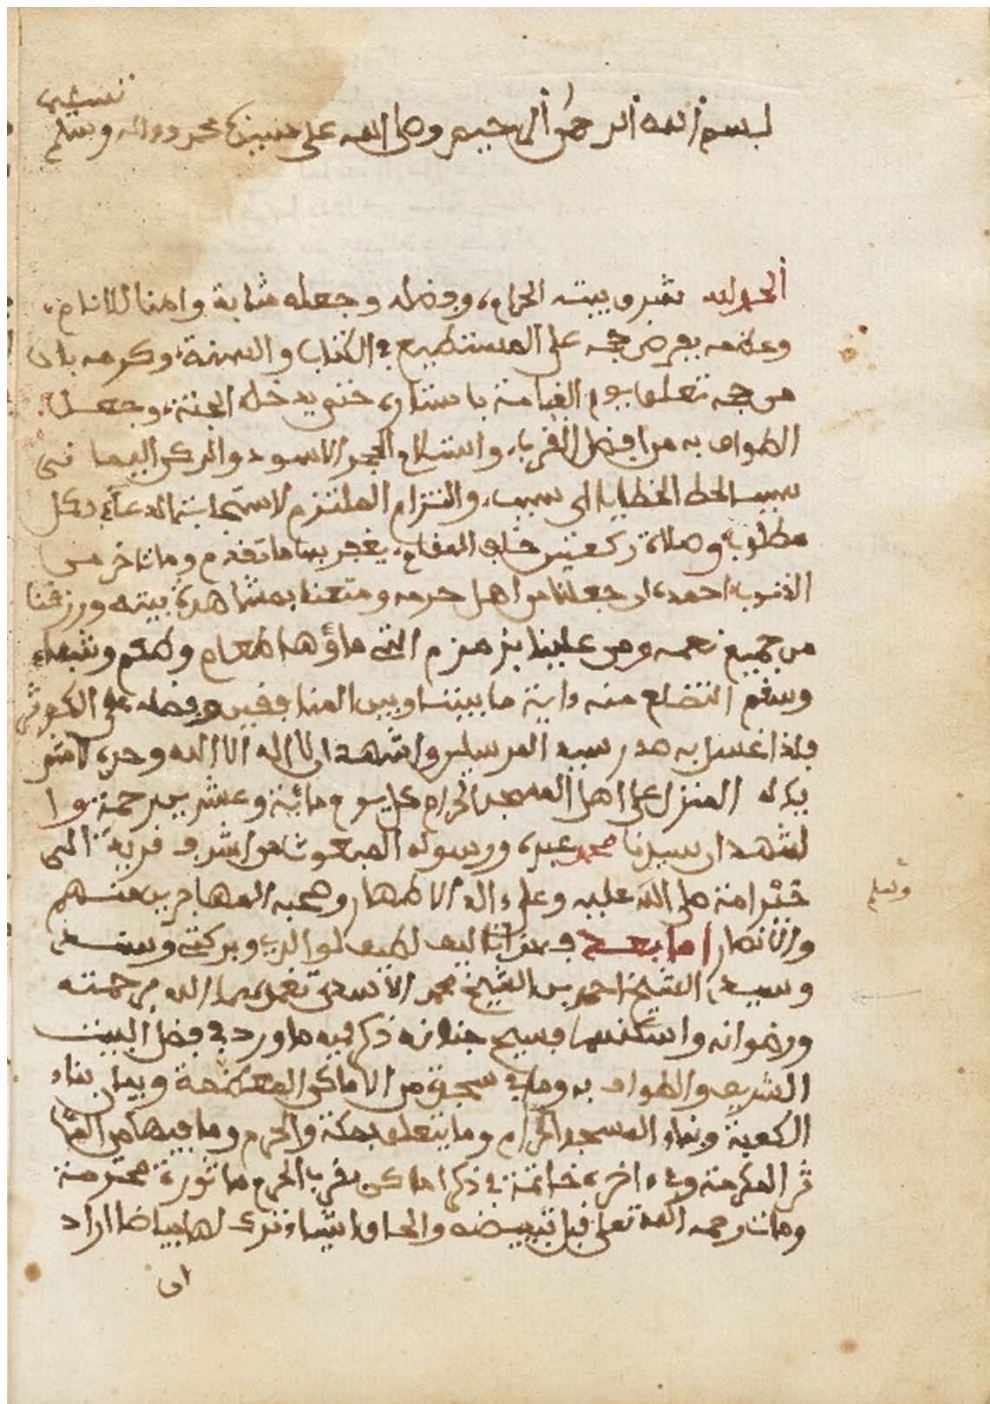 بسم الله الرحمن الرحيم وصلى الله على نبينا محمد وءاله وسلم
الحمد لله شرف بيته الحرام، وفضله وجعله مثابة وامنا للانام،
وعظمه بفرض حجه على المستطيع في الكتاب والسنة، وكرمه بان
من حجه تعلق يوم القيامة باستاره حتى يدخله الجنة، وجعل
الطواف به من افضل القرب، واستلام الحجر الاسود والركن اليمانى
سببا لحط الخطايا اى سبب، والتزام الملتزم لاستجابة الدعاء بكل
مطلوب وصلاة ركعتين خلف المقام، يغفر بها ما تقدم وما تاخر من
الذنوب، احمده ان جعلنا من اهل حرمه ومتعنا بمشاهدة بيته ورزقنا
من جميع نعمه ومن علينا بزمزم التى ماؤها طعام وطعم وشفاء
وسقم التضلع منه داية ما بيننا وبين المنافقين وفضله على الكوثر
فلذا غسل به صدر سيد المرسلين واشهد ان لا اله الا الله وحده لا شر
يك له المنزل على اهل المسجد الحرام كل يوم مائة وعشرين رحمة وا
شهد ان سيدنا محمد عبده ورسوله المبعوث من اشرف قرية الى
خير امة صلى الله عليه وعلى ءاله الاطهار وصحبه المهاجرين منهم
وسلم
والانصار اما بعد فهذا تاليف لطيف لوالدى وبركتى وسندى
وسيدى الشيخ احمد بن الشيخ محمد الاسدى تغمدهما الله برحمته
ورضوانه واسكنهما فسيح جنانه ذكر فيه ما ورد في فضل البيت
الشريف والطواف به وما في من الاماكن المعظمة وبيان بناء
الكعبة وبناء المسجد الحرام وما يتعلق بمكة والحرم وما فيها من المئا
ثر المكرمة وفى ءاخره خاتمة في ذكر اماكن بقرب الحرم ماثورة محترمة
ومات رحمه الله تعلى قبل تبييضه والحاق اشياء ترك لها بياضا اراد
ان